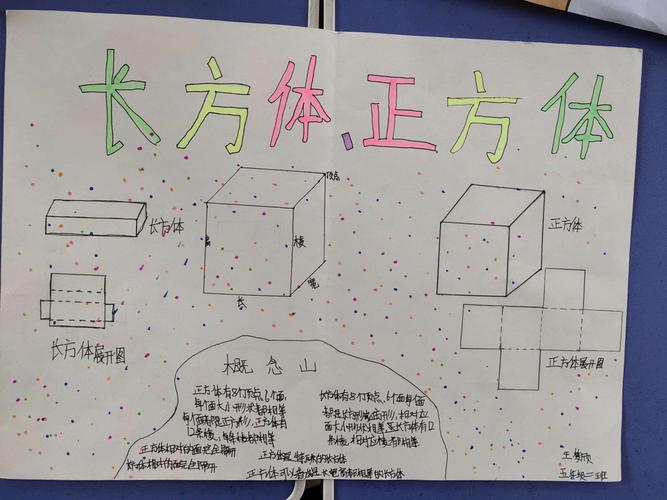 长方体、正方体
顶点
长方体
高
棱
正方体
宽
长
长方体展开图
正方体展开图
概念山
正方体有8个顶点,6个面
每个面大小形状都相等
每个面都是正方形,正方体有
12条棱,每条棱都相等
正方体相对的面完全
长方体相对的面完全
长方体有8个顶点,6个面每个面
都是长方形或正方形,相对应
面大小形状相等,长方体有12
条棱,相对应棱都相等
正方体是特殊的长方体
正方体可以看成是长宽高都相等的长方体
王
五年级二班